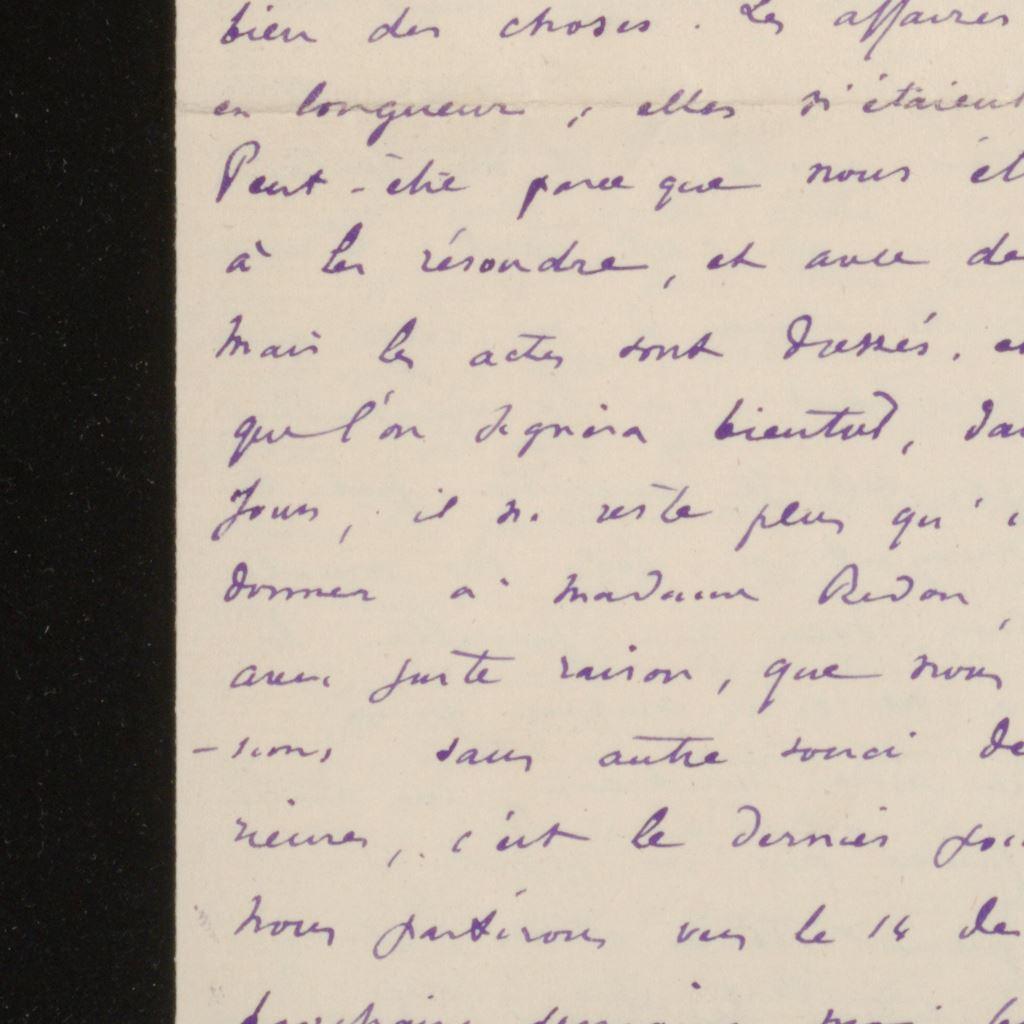 bien des choses. Les affaires
en longueur, elles s'étaient
Peut-être parce que nous ét
à les résoudre, et avec de
Mais les actes sont dressés. et
que l'on signera bientôt, dan
jours, il ne reste plus qu'
donner à madame Redon,
avec juste raison, que nous
-sions sans autre souci de
rieures, c'est le dernier
Nous partirons vers le 14 de